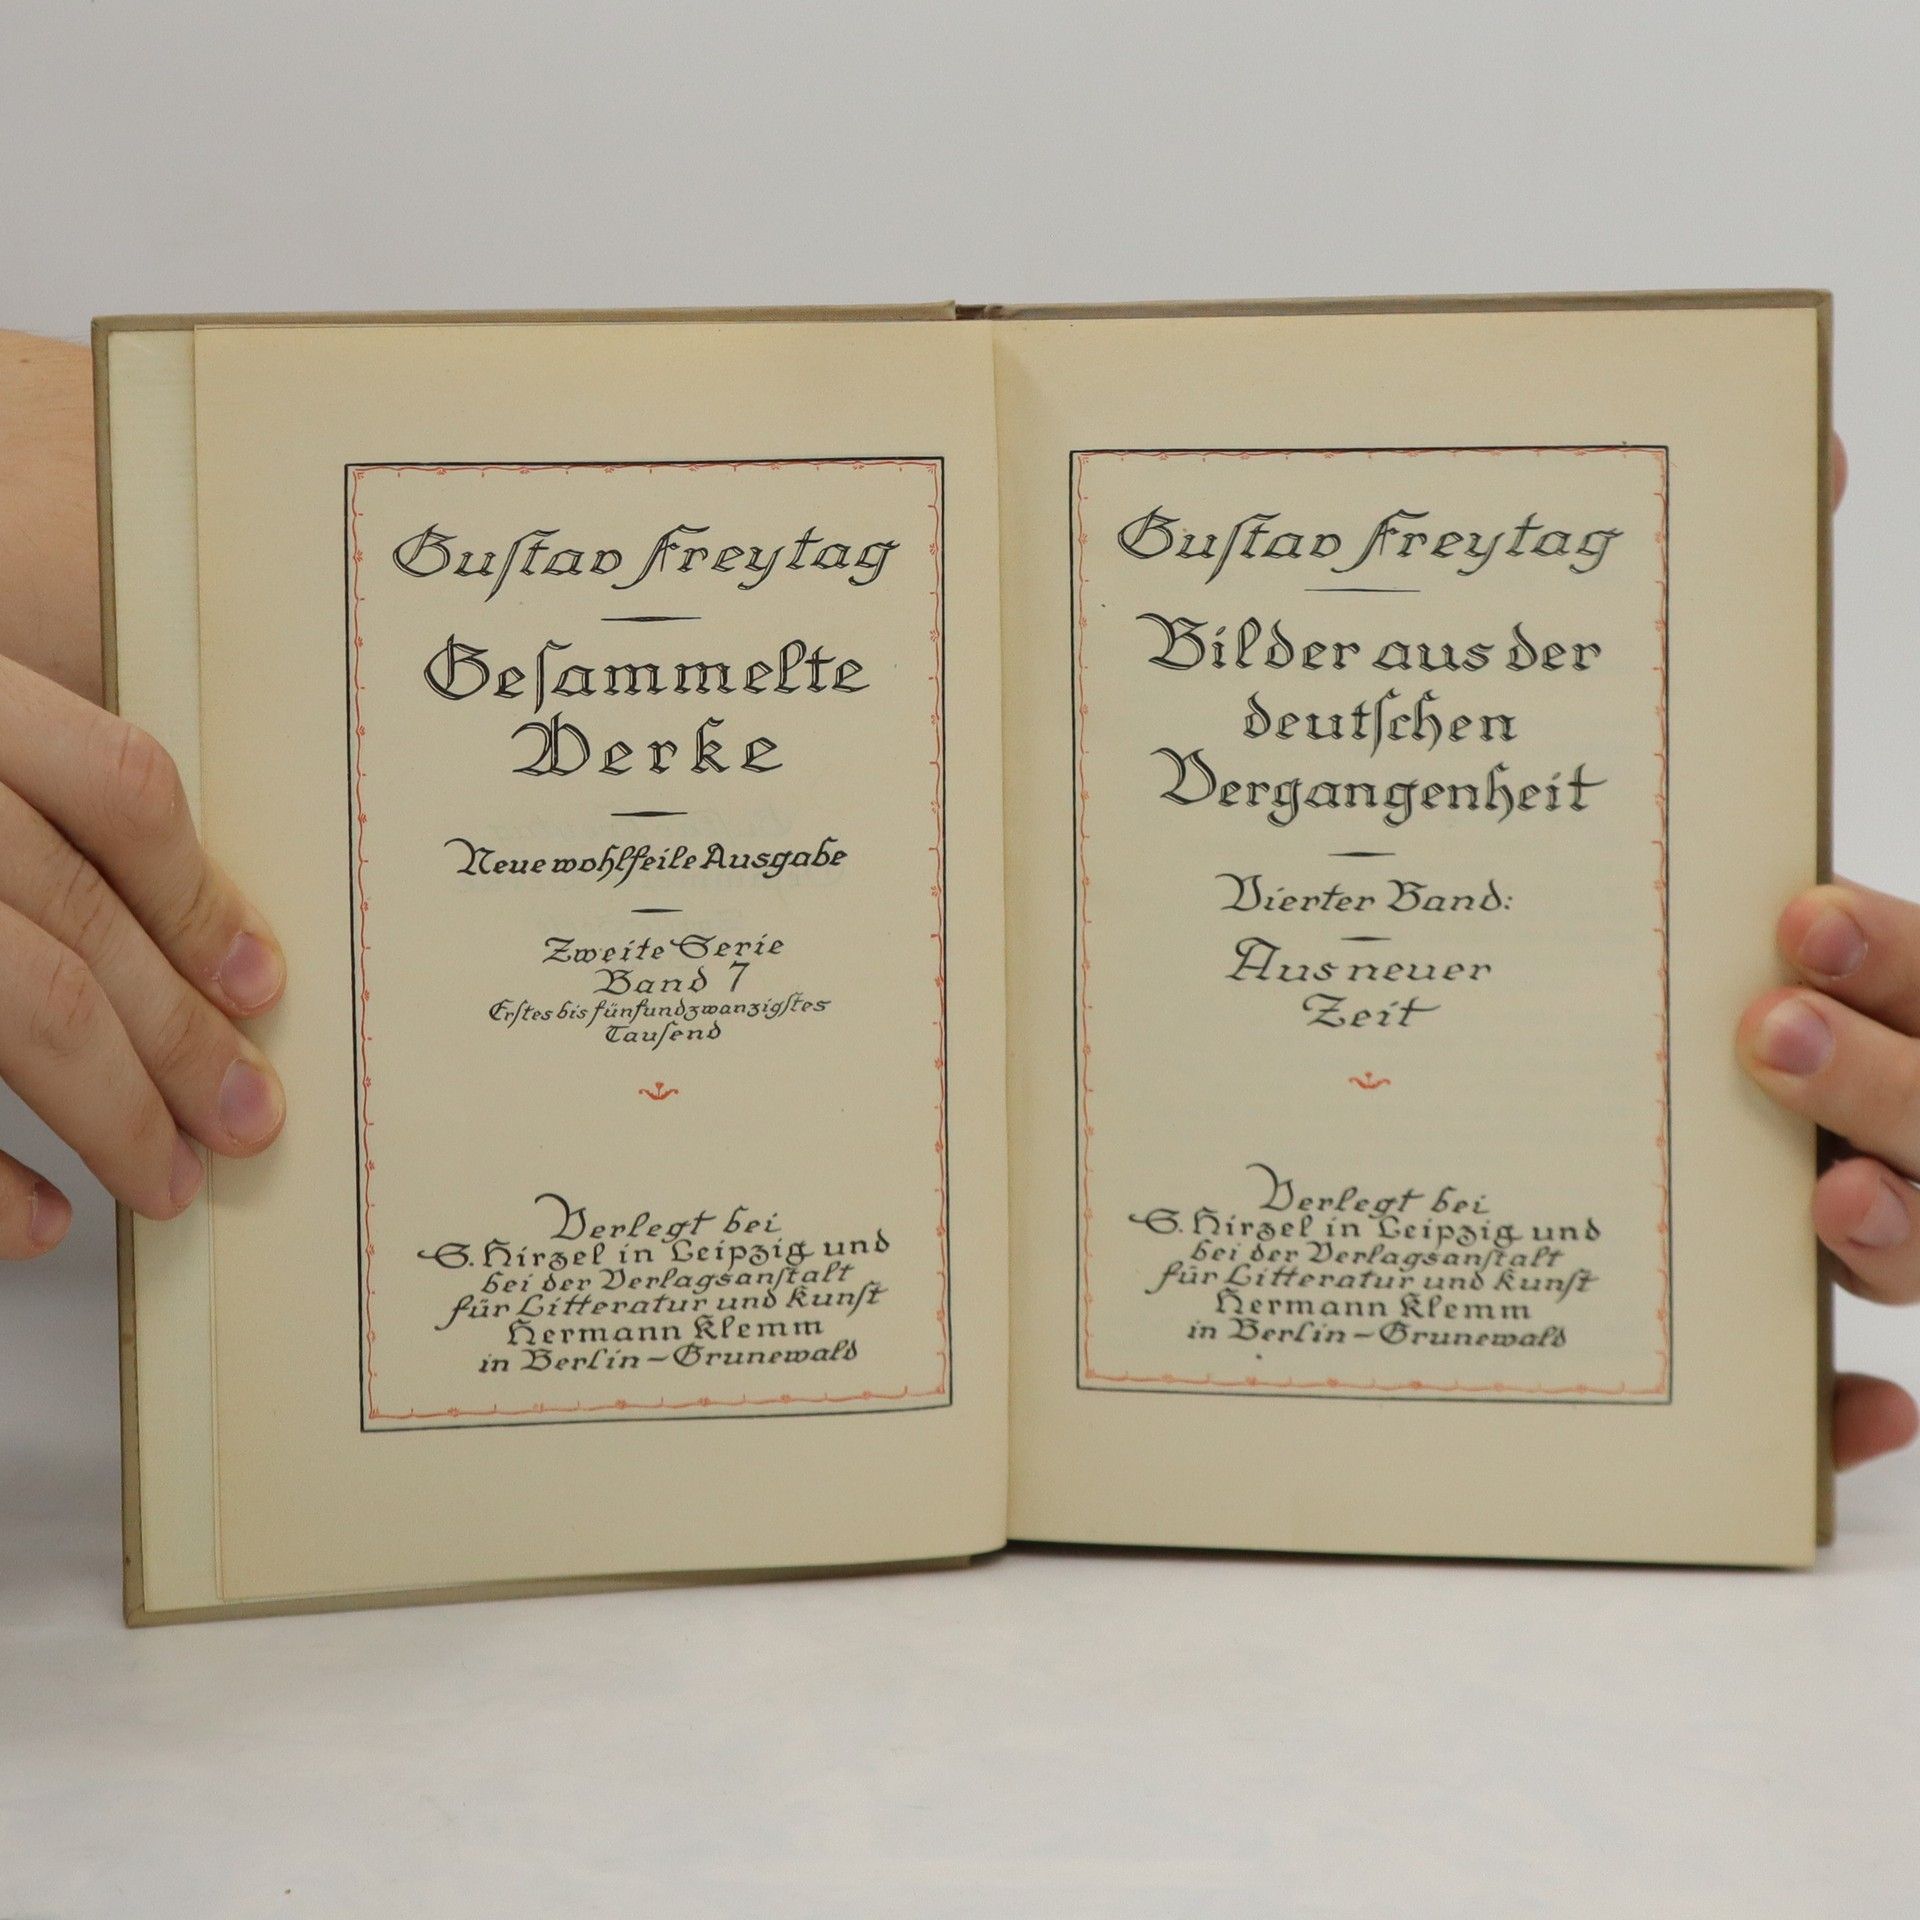 Guſtav Freytag
Geſammelte
Werke
Neue wohlfeile Ausgabe
Zweite Serie
Band 7
Erſtes bis fünfundzwanzigſtes
Tauſend
Verlegt bei
S. Hirzel in Leipzig und
bei der Verlagsanſtalt
für Litteratur und Kunſt
Hermann Klemm
in Berlin-Grunewald
Guſtav Freytag
Bilder aus der
deutſchen
Vergangenheit
Vierter Band:
Aus neuer
Zeit
Verlegt bei
S. Hirzel in Leipzig und
bei der Verlagsanſtalt
für Litteratur und Kunſt
Hermann Klemm
in Berlin-Grunewald